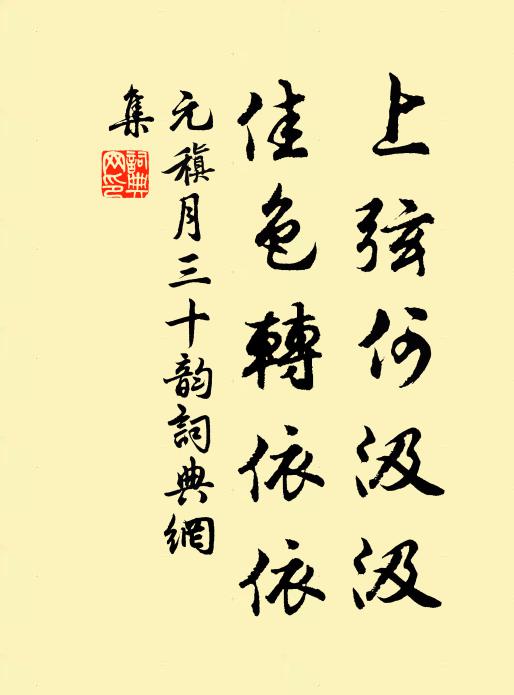 上弦何汲汲
佳色轉依依
元稹月三十韵詞典網
集
詞典网印